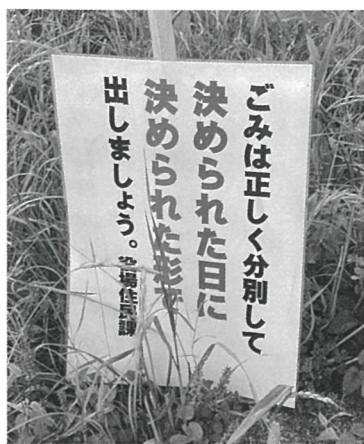 ごみは正しく分別して
決められた日に
決められた
出しましょう。役場住民課